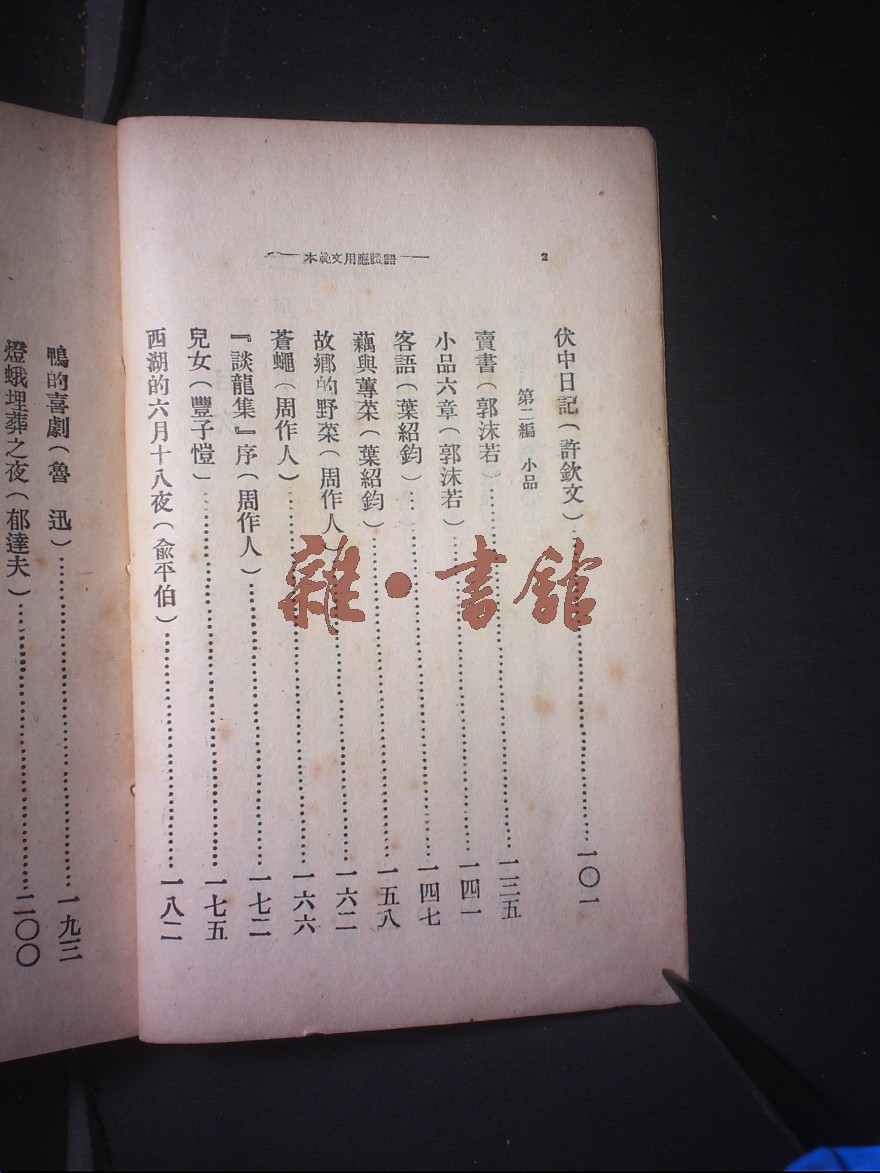 2
語體應用文範本
伏中日記(許欽文)……一〇一
第二編 小品
賣書(郭沫若)……一三五
小品六章(郭沫若)……一四一
客語(葉紹鈞)……一四七
藕與蓴菜(葉紹鈞)……一五八
故鄉的野菜(周作人)……一六二
蒼蠅(周作人)……一六六
『談龍集』序(周作人)……一七二
兒女(豐子愷)……一七五
西湖的六月十八夜(俞平伯)……一八二
鴨的喜劇(魯 迅)……一九三
燈蛾埋葬之夜(郁達夫)……二〇〇
雜·書館